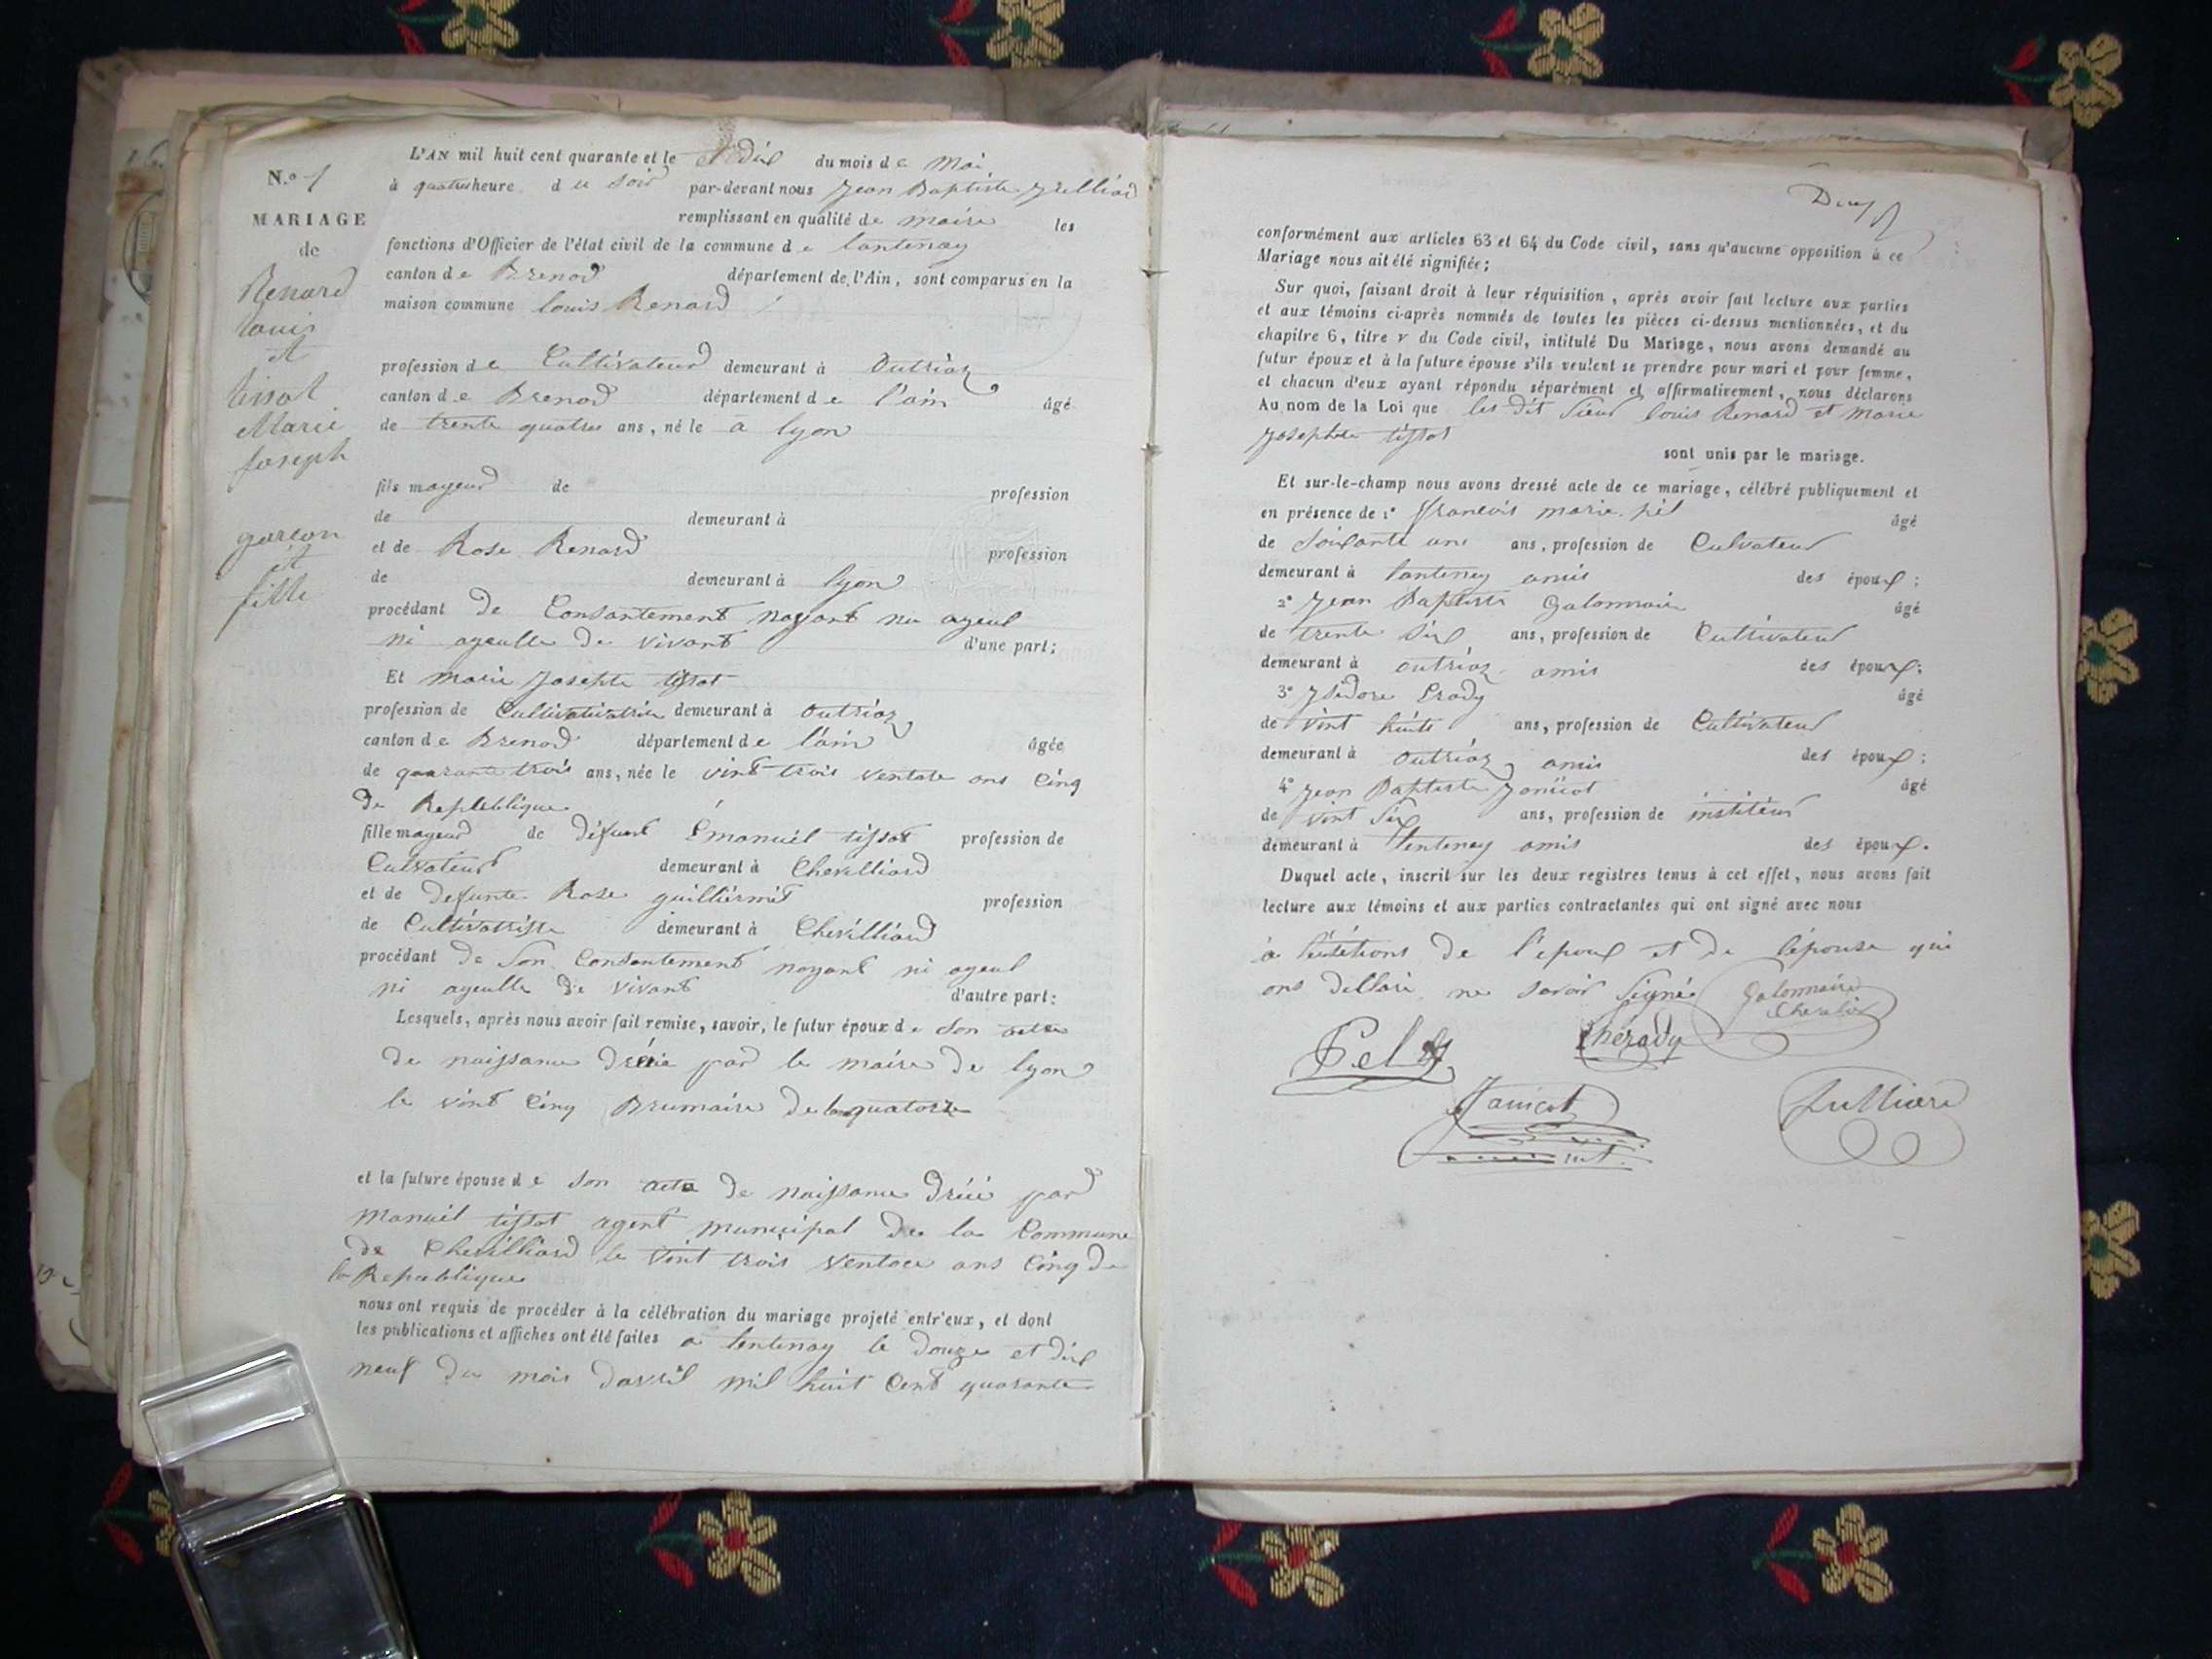 N.º 1
MARIAGE
de
Renard
Louis
et
tissot
Marie
joseph
garcon
et
fille
L'AN mil huit cent quarante et le dix du mois de Mai
à quatre heure du soir par-devant nous Jean Baptiste Julliard
remplissant en qualité de maire les
fonctions d'Officier de l'état civil de la commune de lantenay
canton de Brenod département de l'Ain, sont comparus en la
maison commune louis Renard
profession de Cultivateur demeurant à Outriaz
canton de Brenod département de l'ain âgé
de trente quatre ans, né le a lyon
fils mayeur de profession
de demeurant à
et de Rose Renard profession
de demeurant à lyon
procédant de Consantement nayant ni ayeul
ni ayeulle de vivant d'une part;
Et marie Josephte tissot
profession de demeurant à Outriaz
canton de Brenod département de l'ain âgée
de quarante trois ans, née le vint trois ventose ans Cinq
de Republique
fille mayeur de défunt Emanuël tissot profession de
Culvateur demeurant à Chevilliard
et de defunte Rose guilliermet profession
de Cultivattisse demeurant à Chevilliard
procédant de Son Consantement nayant ni ayeul
ni ayeulle de vivant d'autre part:
Lesquels, après nous avoir fait remise, savoir, le futur époux de Son acte
de naissance par le maire de lyon
le vint Cinq Brumaire quatorze
et la future épouse de son acte de naissance dréié par
Manuël tissot agent municipal de la Commune
de Chevilliard le vint trois ventoce ans Cinq de
la Republique
nous ont requis de procéder à la célébration du mariage projeté entr'eux, et dont
les publications et affiches ont été faites a lentenay le douze et dix
neuf du mois davril mil huit Cent quarante
Deux
conformément aux articles 63 et 64 du Code civil, sans qu'aucune opposition à ce
Mariage nous ait été signifiée;
Sur quoi, faisant droit à leur réquisition, après avoir fait lecture aux parties
et aux témoins ci-après nommés de toutes les pièces ci-dessus mentionnées, et du
chapitre 6, titre v du Code civil, intitulé Du Mariage, nous avons demandé au
futur époux et à la future épouse s'ils veulent se prendre pour mari et pour femme,
et chacun d'eux ayant répondu séparément et affirmativement, nous déclarons
Au nom de la Loi que les dit Sieur louis Renard et Marie
Josephte tissot
sont unis par le mariage.
Et sur-le-champ nous avons dressé acte de ce mariage, célébré publiquement et
en présence de 1º françois marie pél âgé
de Soixante ans, profession de Culvateur
demeurant à lantenay amis des époux;
2º Jean Baptiste Galonnaire âgé
de trente Six ans, profession de Cultivateur
demeurant à outriaz amis des époux;
3º Ysidore Erady âgé
de vint huit ans, profession de Cultivateur
demeurant à outriaz amis des époux;
4º Jean Baptiste Janicot âgé
de vint Six ans, profession de institeur
demeurant à lentenay amis des époux.
Duquel acte, inscrit sur les deux registres tenus à cet effet, nous avons fait
lecture aux témoins et aux parties contractantes qui ont signé avec nous
a de l'époux et de l'épouse qui
ons dellaré ne savoir Signé Galonnaire
Chevalier
Pel
herady
Janicot
Julliard